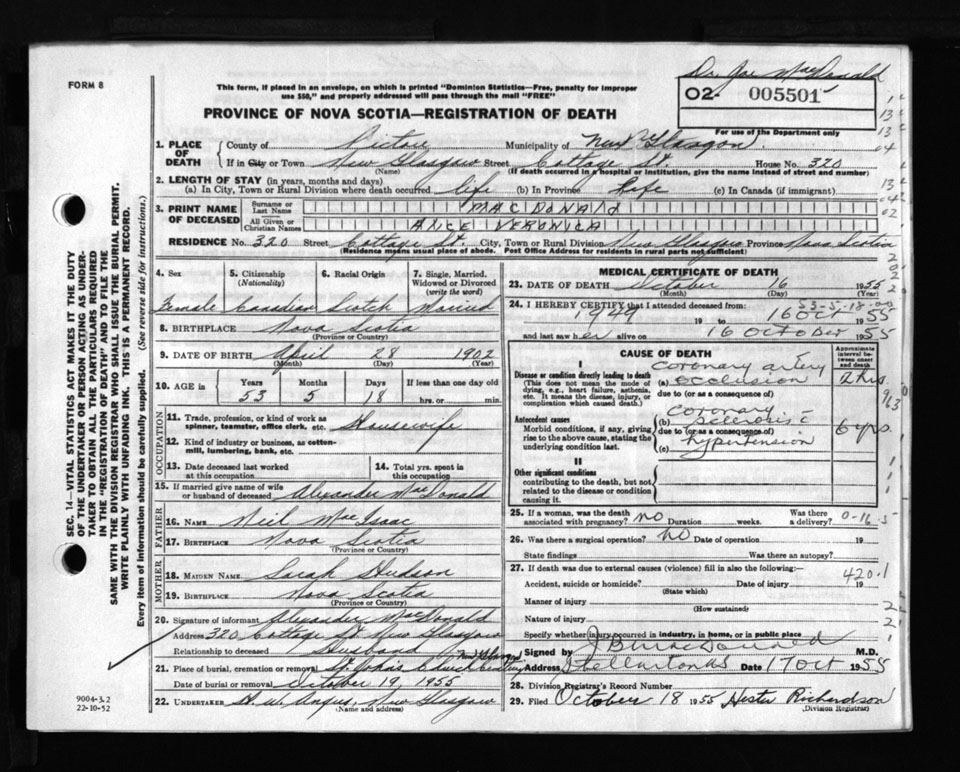 Dr. Joe MacDonald
FORM 8
This form, if placed in an envelope, on which is printed "Dominion Statistics—Free, penalty for improper
use $50," and properly addressed will pass through the mail "FREE"
O2- 005501
PROVINCE OF NOVA SCOTIA—REGISTRATION OF DEATH
For use of the Department only
1. PLACE OF DEATH
County of Pictou Municipality of New Glasgow.
If in City or Town New Glasgow Street Cottage St. House No. 320
(Name) (If death occurred in a hospital or institution, give the name instead of street and number)
2. LENGTH OF STAY (in years, months and days)
(a) In City, Town or Rural Division where death occurred life (b) In Province Life (c) In Canada (if immigrant)
3. PRINT NAME OF DECEASED
Surname or Last Name MACDONALD
All Given or Christian Names ALICE VERONICA
RESIDENCE No. 320 Street Cottage St. City, Town or Rural Division New Glasgow Province Nova Scotia
(Residence means usual place of abode. Post Office Address for residents in rural parts not sufficient)
4. Sex Female
5. Citizenship (Nationality) Canadian
6. Racial Origin Scotch
7. Single, Married, Widowed or Divorced (write the word) Married
8. BIRTHPLACE Nova Scotia
(Province or Country)
9. DATE OF BIRTH April 28 1902
(Month) (Day) (Year)
10. AGE in Years 53 Months 5 Days 18 If less than one day old
hrs. or min.
OCCUPATION
11. Trade, profession, or kind of work as spinner, teamster, office clerk, etc. Housewife
12. Kind of industry or business, as cotton-mill, lumbering, bank, etc.
13. Date deceased last worked at this occupation
14. Total yrs. spent in this occupation
15. If married give name of wife or husband of deceased Alexander MacDonald
FATHER
16. NAME Neil MacIsaac
17. BIRTHPLACE Nova Scotia
(Province or Country)
MOTHER
18. MAIDEN NAME Sarah Hudson
19. BIRTHPLACE Nova Scotia
(Province or Country)
20. Signature of informant Alexander MacDonald
Address 320 Cottage St New Glasgow
Relationship to deceased Husband
21. Place of burial, cremation or removal St. John's Church Cemetery New Glasgow
Date of burial or removal October 19, 1955
22. UNDERTAKER H. W. Angus, New Glasgow
(Name and address)
MEDICAL CERTIFICATE OF DEATH
23. DATE OF DEATH October 16 1955
(Month) (Day) (Year)
53-5-18-00
24. I HEREBY CERTIFY that I attended deceased from:
1949 19 to 16 Oct 1955
and last saw her alive on 16 October 1955
CAUSE OF DEATH
Approximate interval between onset and death
I
Disease or condition directly leading to death
(This does not mean the mode of dying, e.g., heart failure, asthenia, etc. It means the disease, injury, or complication which caused death.)
(a) Coronary artery occlusion 2 hrs.
due to (or as a consequence of)
Antecedent causes
Morbid conditions, if any, giving rise to the above cause, stating the underlying condition last.
(b) Coronary sclerosis c̄ 6 yrs.
due to (or as a consequence of)
(c) hypertension
II
Other significant conditions
contributing to the death, but not related to the disease or condition causing it.
25. If a woman, was the death associated with pregnancy? NO Duration weeks. Was there a delivery? 0-16-5
26. Was there a surgical operation? NO Date of operation 19
State findings Was there an autopsy?
27. If death was due to external causes (violence) fill in also the following:— 420.1
Accident, suicide or homicide? Date of injury 19
(State which)
Manner of injury
(How sustained)
Nature of injury
Specify whether injury occurred in industry, in home, or in public place
Signed by J B MacDonald M.D.
Address Stellarton NS Date 17 Oct 1955
28. Division Registrar's Record Number
29. Filed October 18 1955 Hester Richardson
(Division Registrar)
SEC. 14—VITAL STATISTICS ACT MAKES IT THE DUTY
OF THE UNDERTAKER OR PERSON ACTING AS UNDER-
TAKER TO OBTAIN ALL THE PARTICULARS REQUIRED
IN THE "REGISTRATION OF DEATH" AND TO FILE THE
SAME WITH THE DIVISION REGISTRAR WHO SHALL ISSUE THE BURIAL PERMIT.
WRITE PLAINLY WITH UNFADING INK. THIS IS A PERMANENT RECORD.
Every item of information should be carefully supplied. (See reverse side for instructions.)
9004-3.2
22-10-52